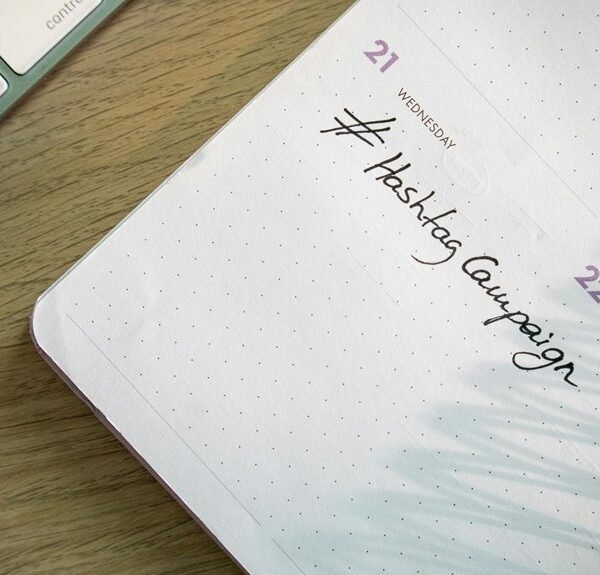 control
21
WEDNESDAY
# Hashtag Campaign
22